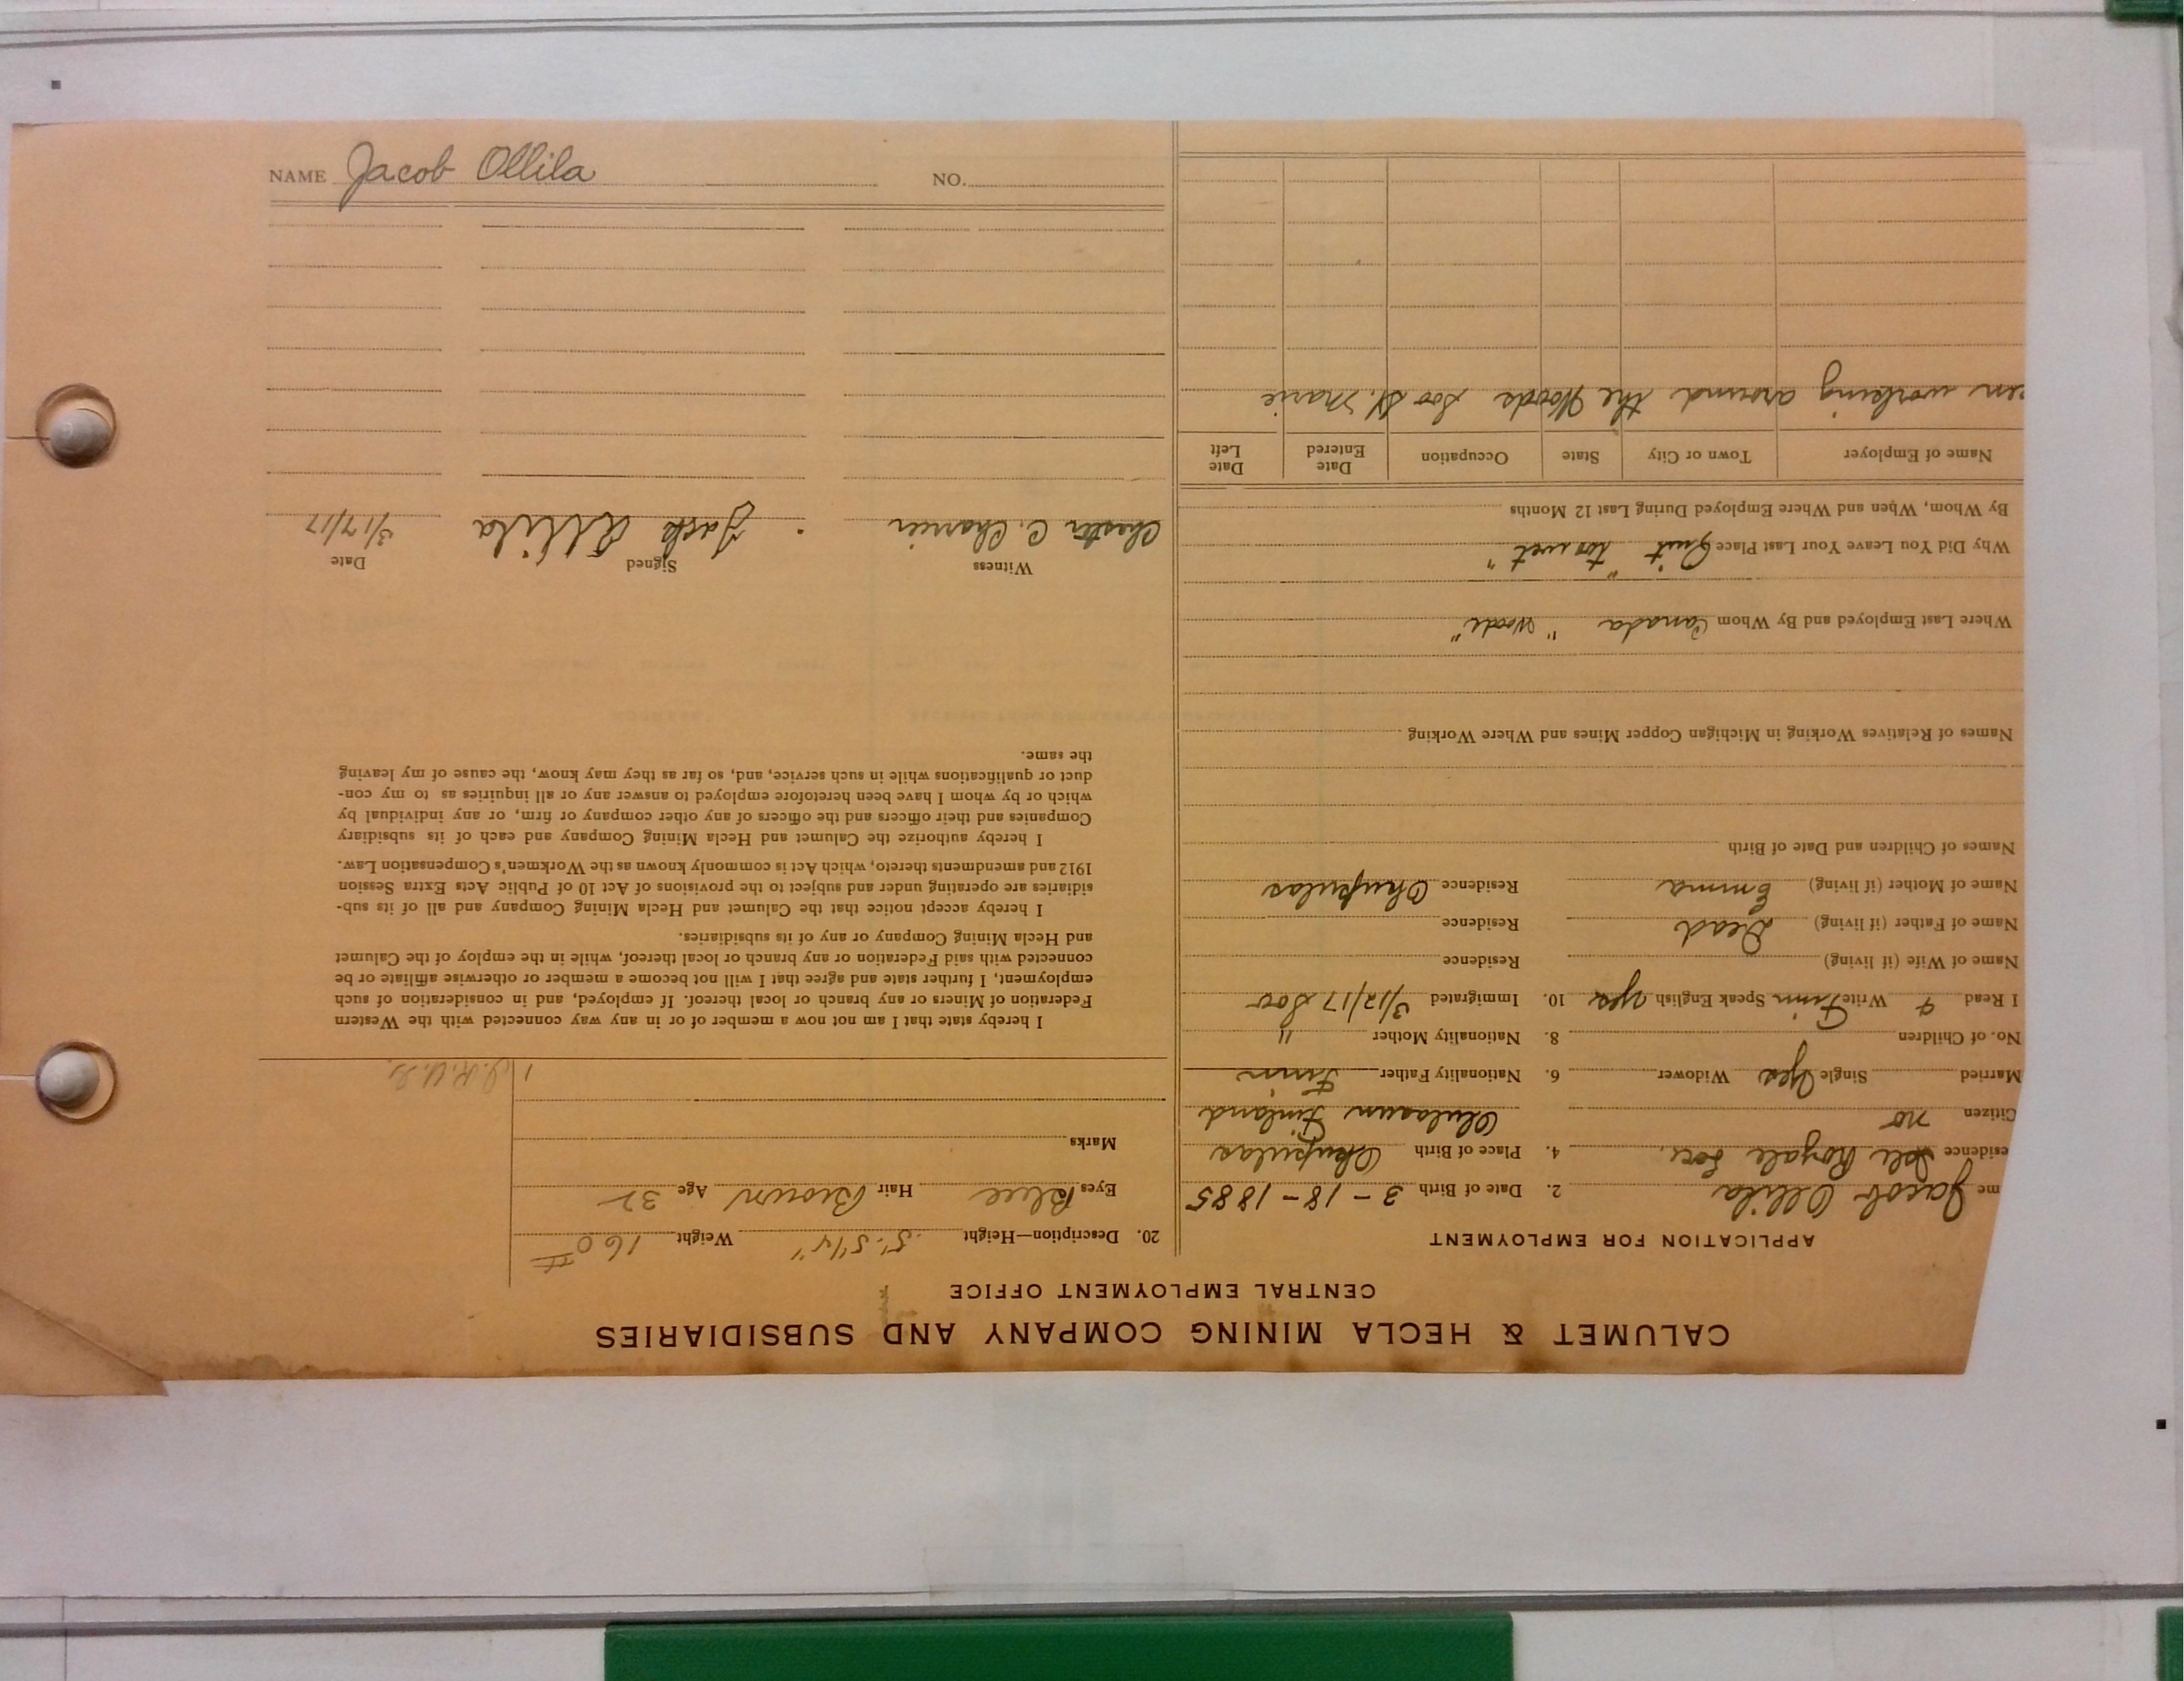 NAME Jacob Ollila NO.
CALUMET & HECLA MINING COMPANY AND SUBSIDIARIES
CENTRAL EMPLOYMENT OFFICE
APPLICATION FOR EMPLOYMENT
me Jacob Ollila 2. Date of Birth 3-18-1885
esidence Isle Royale Loc. 4. Place of Birth
Citizen no Finland
Married Single Yes Widower 6. Nationality Father Finn
No. of Children 8. Nationality Mother "
I Read & Write Finn Speak English yes 10. Immigrated 3/12/17 Soo
Name of Wife (if living) Residence
Name of Father (if living) Dead Residence
Name of Mother (if living) Emma Residence
Names of Children and Date of Birth
Names of Relatives Working in Michigan Copper Mines and Where Working
Where Last Employed and By Whom Canada "Woods"
Why Did You Leave Your Last Place Quit "too wet"
By Whom, When and Where Employed During Last 12 Months
Name of Employer Town or City State Occupation Date Entered Date Left
en working around the Woods Soo St. Marie
20. Description—Height 5' 5 1/4" Weight 160 #
Eyes Blue Hair Brown Age 32
Marks
I hereby state that I am not now a member of or in any way connected with the Western
Federation of Miners or any branch or local thereof. If employed, and in consideration of such
employment, I further state and agree that I will not become a member or otherwise affiliate or be
connected with said Federation or any branch or local thereof, while in the employ of the Calumet
and Hecla Mining Company or any of its subsidiaries.
I hereby accept notice that the Calumet and Hecla Mining Company and all of its sub-
sidiaries are operating under and subject to the provisions of Act 10 of Public Acts Extra Session
1912 and amendments thereto, which Act is commonly known as the Workmen's Compensation Law.
I hereby authorize the Calumet and Hecla Mining Company and each of its subsidiary
Companies and their officers and the officers of any other company or firm, or any individual by
which or by whom I have been heretofore employed to answer any or all inquiries as to my con-
duct or qualifications while in such service, and, so far as they may know, the cause of my leaving
the same.
Witness Signed Date
Chester C. Jack Ollila 3/17/17